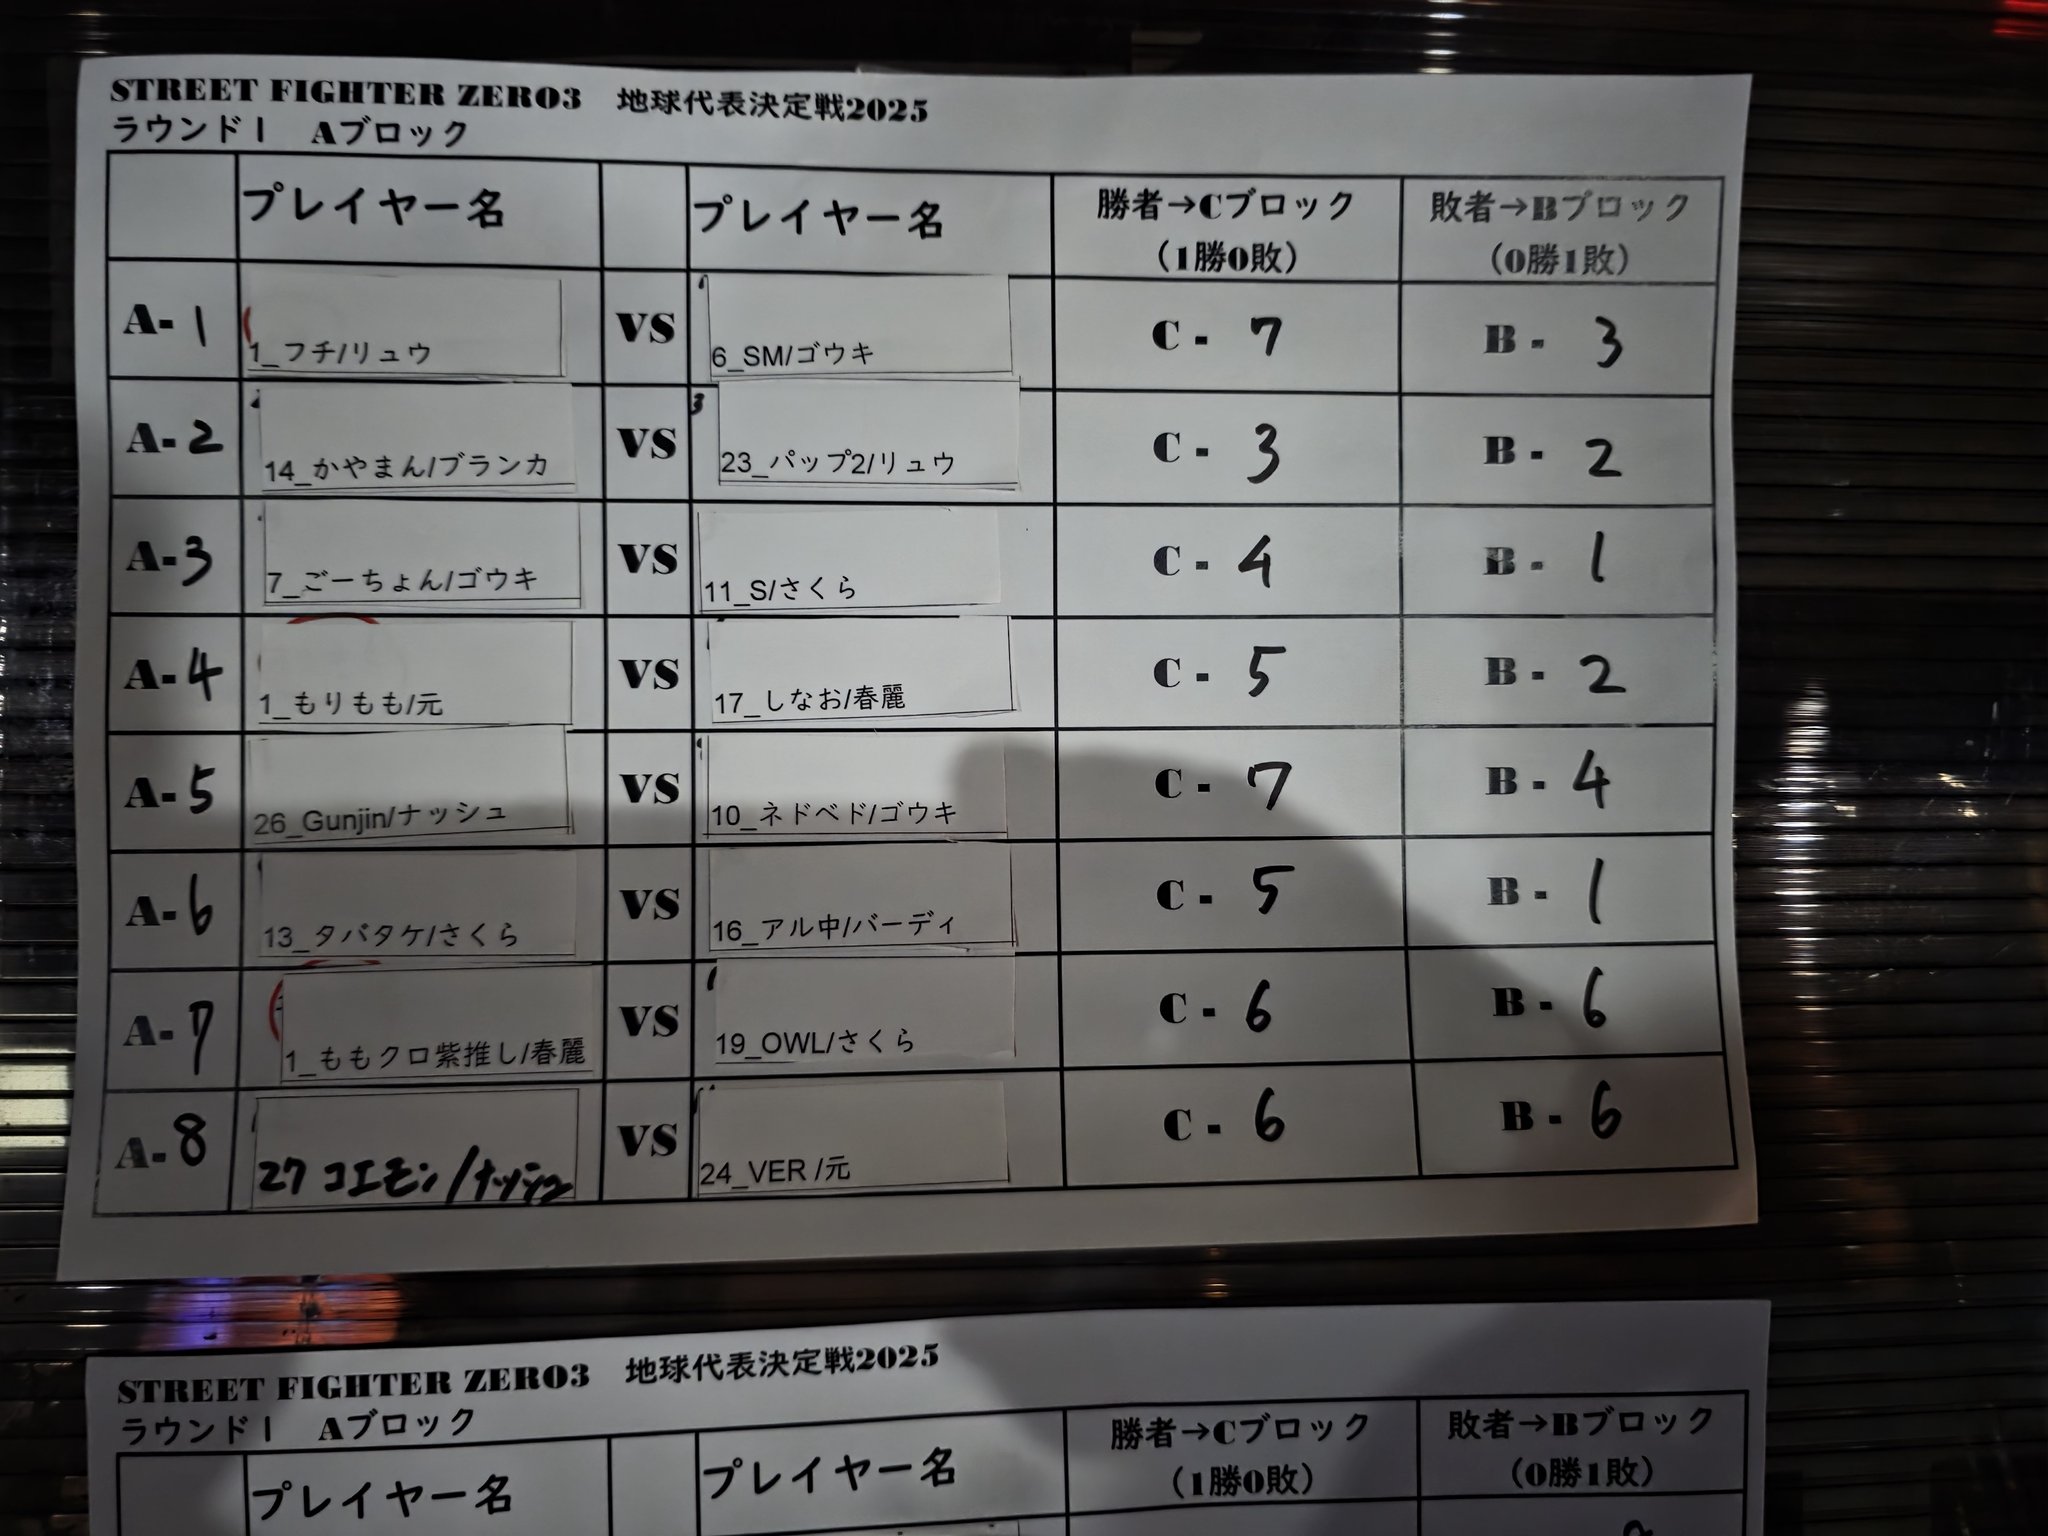 STREET FIGHTER ZERO3　地球代表決定戦2025
ラウンド1　Aブロック
プレイヤー名 プレイヤー名 勝者→Cブロック 敗者→Bブロック
(1勝0敗) (0勝1敗)
A-1 1_フチ/リュウ VS 6_SM/ゴウキ C - 7 B - 3
A-2 14_かやまん/ブランカ VS 3 23_パップ2/リュウ C - 3 B - 2
A-3 7_ごーちょん/ゴウキ VS 11_S/さくら C - 4 B - 1
A-4 1_もりもも/元 VS 17_しなお/春麗 C - 5 B - 2
A-5 26_Gunjin/ナッシュ VS 10_ネドベド/ゴウキ C - 7 B - 4
A-6 13_タバタケ/さくら VS 16_アル中/バーディ C - 5 B - 1
A-7 1_ももクロ紫推し/春麗 VS 19_OWL/さくら C - 6 B - 6
A-8 27 コエモン/ナッシュ VS 24_VER /元 C - 6 B - 6
STREET FIGHTER ZERO3　地球代表決定戦2025
ラウンド1　Aブロック
プレイヤー名 プレイヤー名 勝者→Cブロック 敗者→Bブロック
(1勝0敗) (0勝1敗)